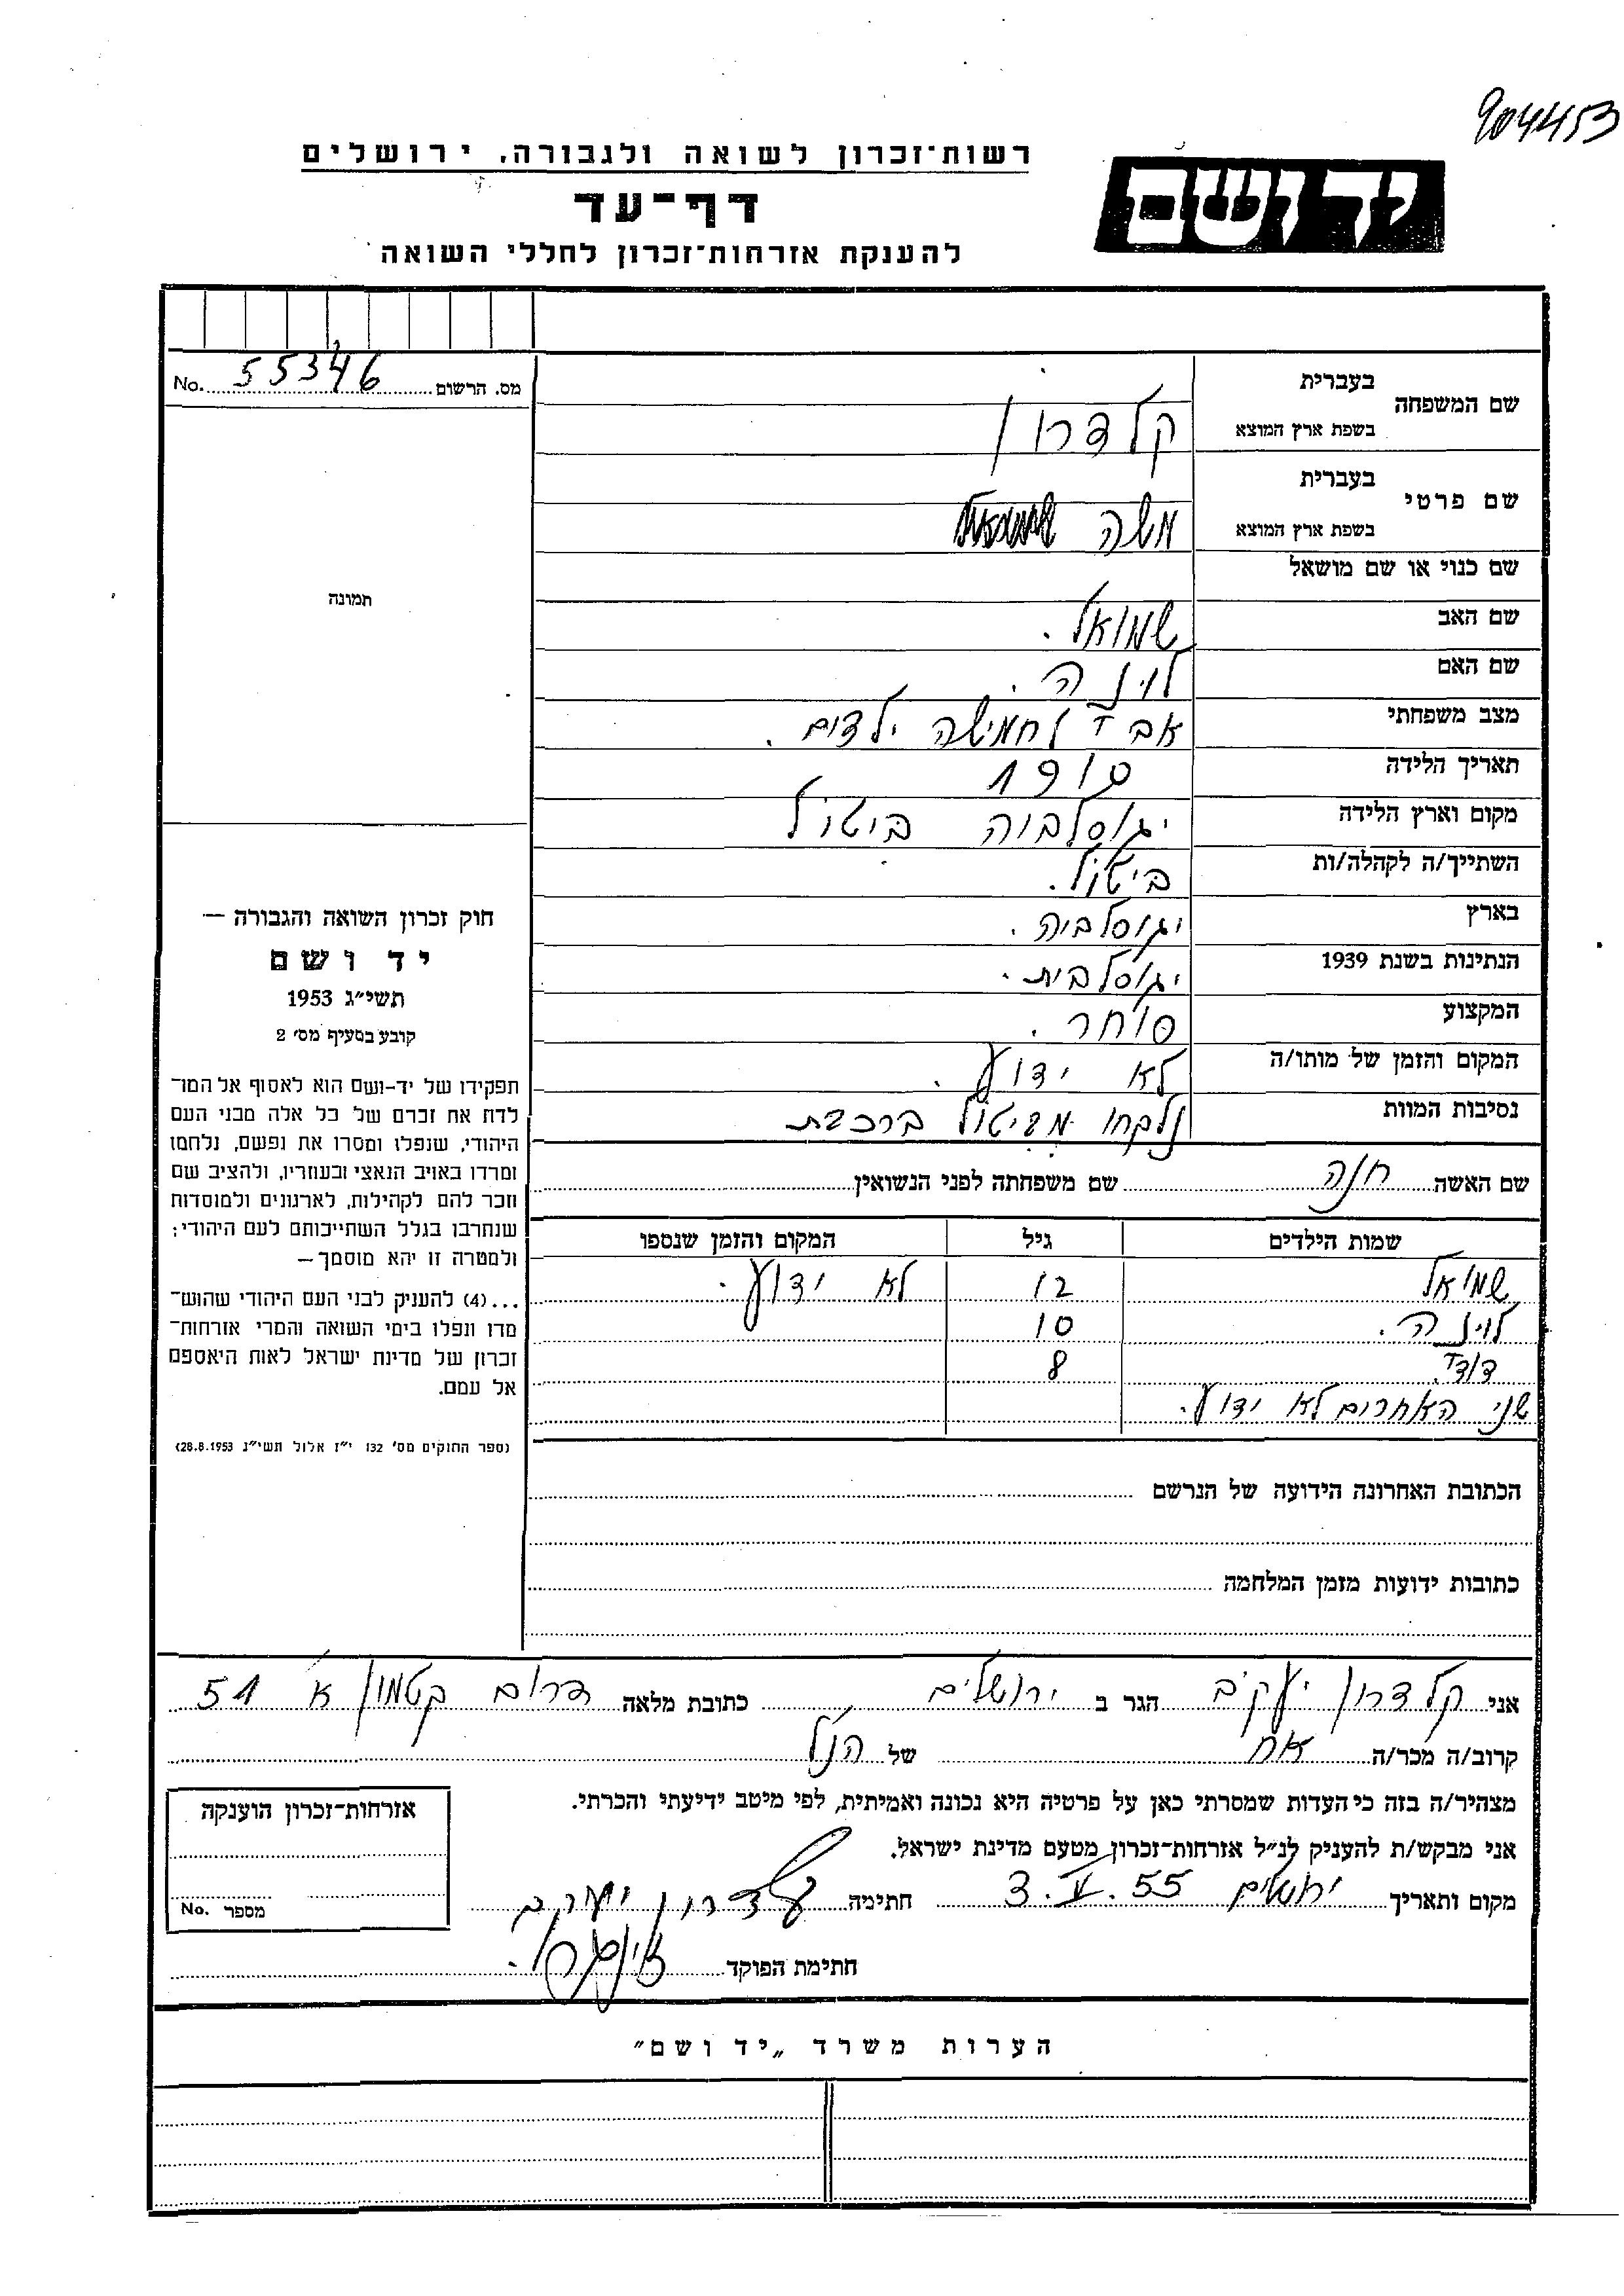 904453
רשות־זכרון לשואה ולגבורה, ירושלים
יד ושם
דף־עד
להענקת אזרחות־זכרון לחללי השואה
No. 55346 מס. הרשום
שם המשפחה בעברית
בשפת ארץ המוצא קלדרון
שם פרטי בעברית
בשפת ארץ המוצא משה
שם כנוי או שם מושאל
תמונה
שם האב שמואל.
שם האם לוינה.
מצב משפחתי אב ל חמישה ילדים.
תאריך הלידה 1910
מקום וארץ הלידה יגוסלביה ביטול
השתייך/ה לקהלה/ות ביטול.
בארץ יגוסלביה.
הנתינות בשנת 1939 יגוסלבית.
המקצוע סוחר.
המקום והזמן של מותו/ה לא ידוע.
נסיבות המוות נלקחו מביטול ברכבת
שם האשה חנה שם משפחתה לפני הנשואין
שמות הילדים גיל המקום והזמן שנספו
שמואל 12 לא ידוע.
לוינה. 10
דוד. 8
שני האחרים לא ידוע.
חוק זכרון השואה והגבורה —
יד ושם
תשי״ג 1953
קובע בסעיף מס׳ 2
תפקידו של יד-ושם הוא לאסוף אל המו־
לדת את זכרם של כל אלה מבני העם
היהודי, שנפלו ומסרו את נפשם, נלחמו
ומרדו באויב הנאצי ובעוזריו, ולהציב שם
וזכר להם לקהילות, לארגונים ולמוסדות
שנחרבו בגלל השתייכותם לעם היהודי;
ולמטרה זו יהא מוסמך—
...(4) להעניק לבני העם היהודי שהוש־
מדו ונפלו בימי השואה והמרי אזרחות־
זכרון של מדינת ישראל לאות היאספם
אל עמם.
(ספר החוקים מס׳ 132 י״ז אלול תשי״ג 28.8.1953)
הכתובת האחרונה הידועה של הנרשם
כתובות ידועות מזמן המלחמה
אני קלדרון יעקב הגר ב ירושלים כתובת מלאה דרום קטמון א׳ 51
קרוב/ה מכר/ה אח של הנ״ל
מצהיר/ה בזה כי העדות שמסרתי כאן על פרטיה היא נכונה ואמיתית, לפי מיטב ידיעתי והכרתי.
אני מבקש/ת להעניק לנ״ל אזרחות־זכרון מטעם מדינת ישראל.
מקום ותאריך ירושלים 3.V.55 חתימה קלדרון יעקב
חתימת הפוקד
אזרחות־זכרון הוענקה
מספר No.
הערות משרד „יד ושם״